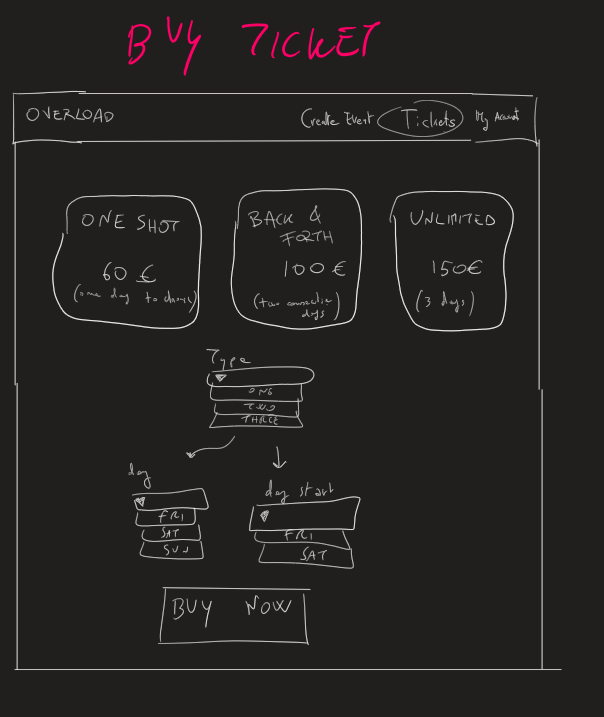 BUY TICKET
OVERLOAD
Create Event
Tickets
My Account
ONE SHOT
60 €
(one day to choose)
BACK &
FORTH
100 €
(two consecutive
days)
UNLIMITED
150€
(3 days)
Type
ONE
TWO
THREE
day
FRI
SAT
SUN
day start
FRI
SAT
BUY NOW